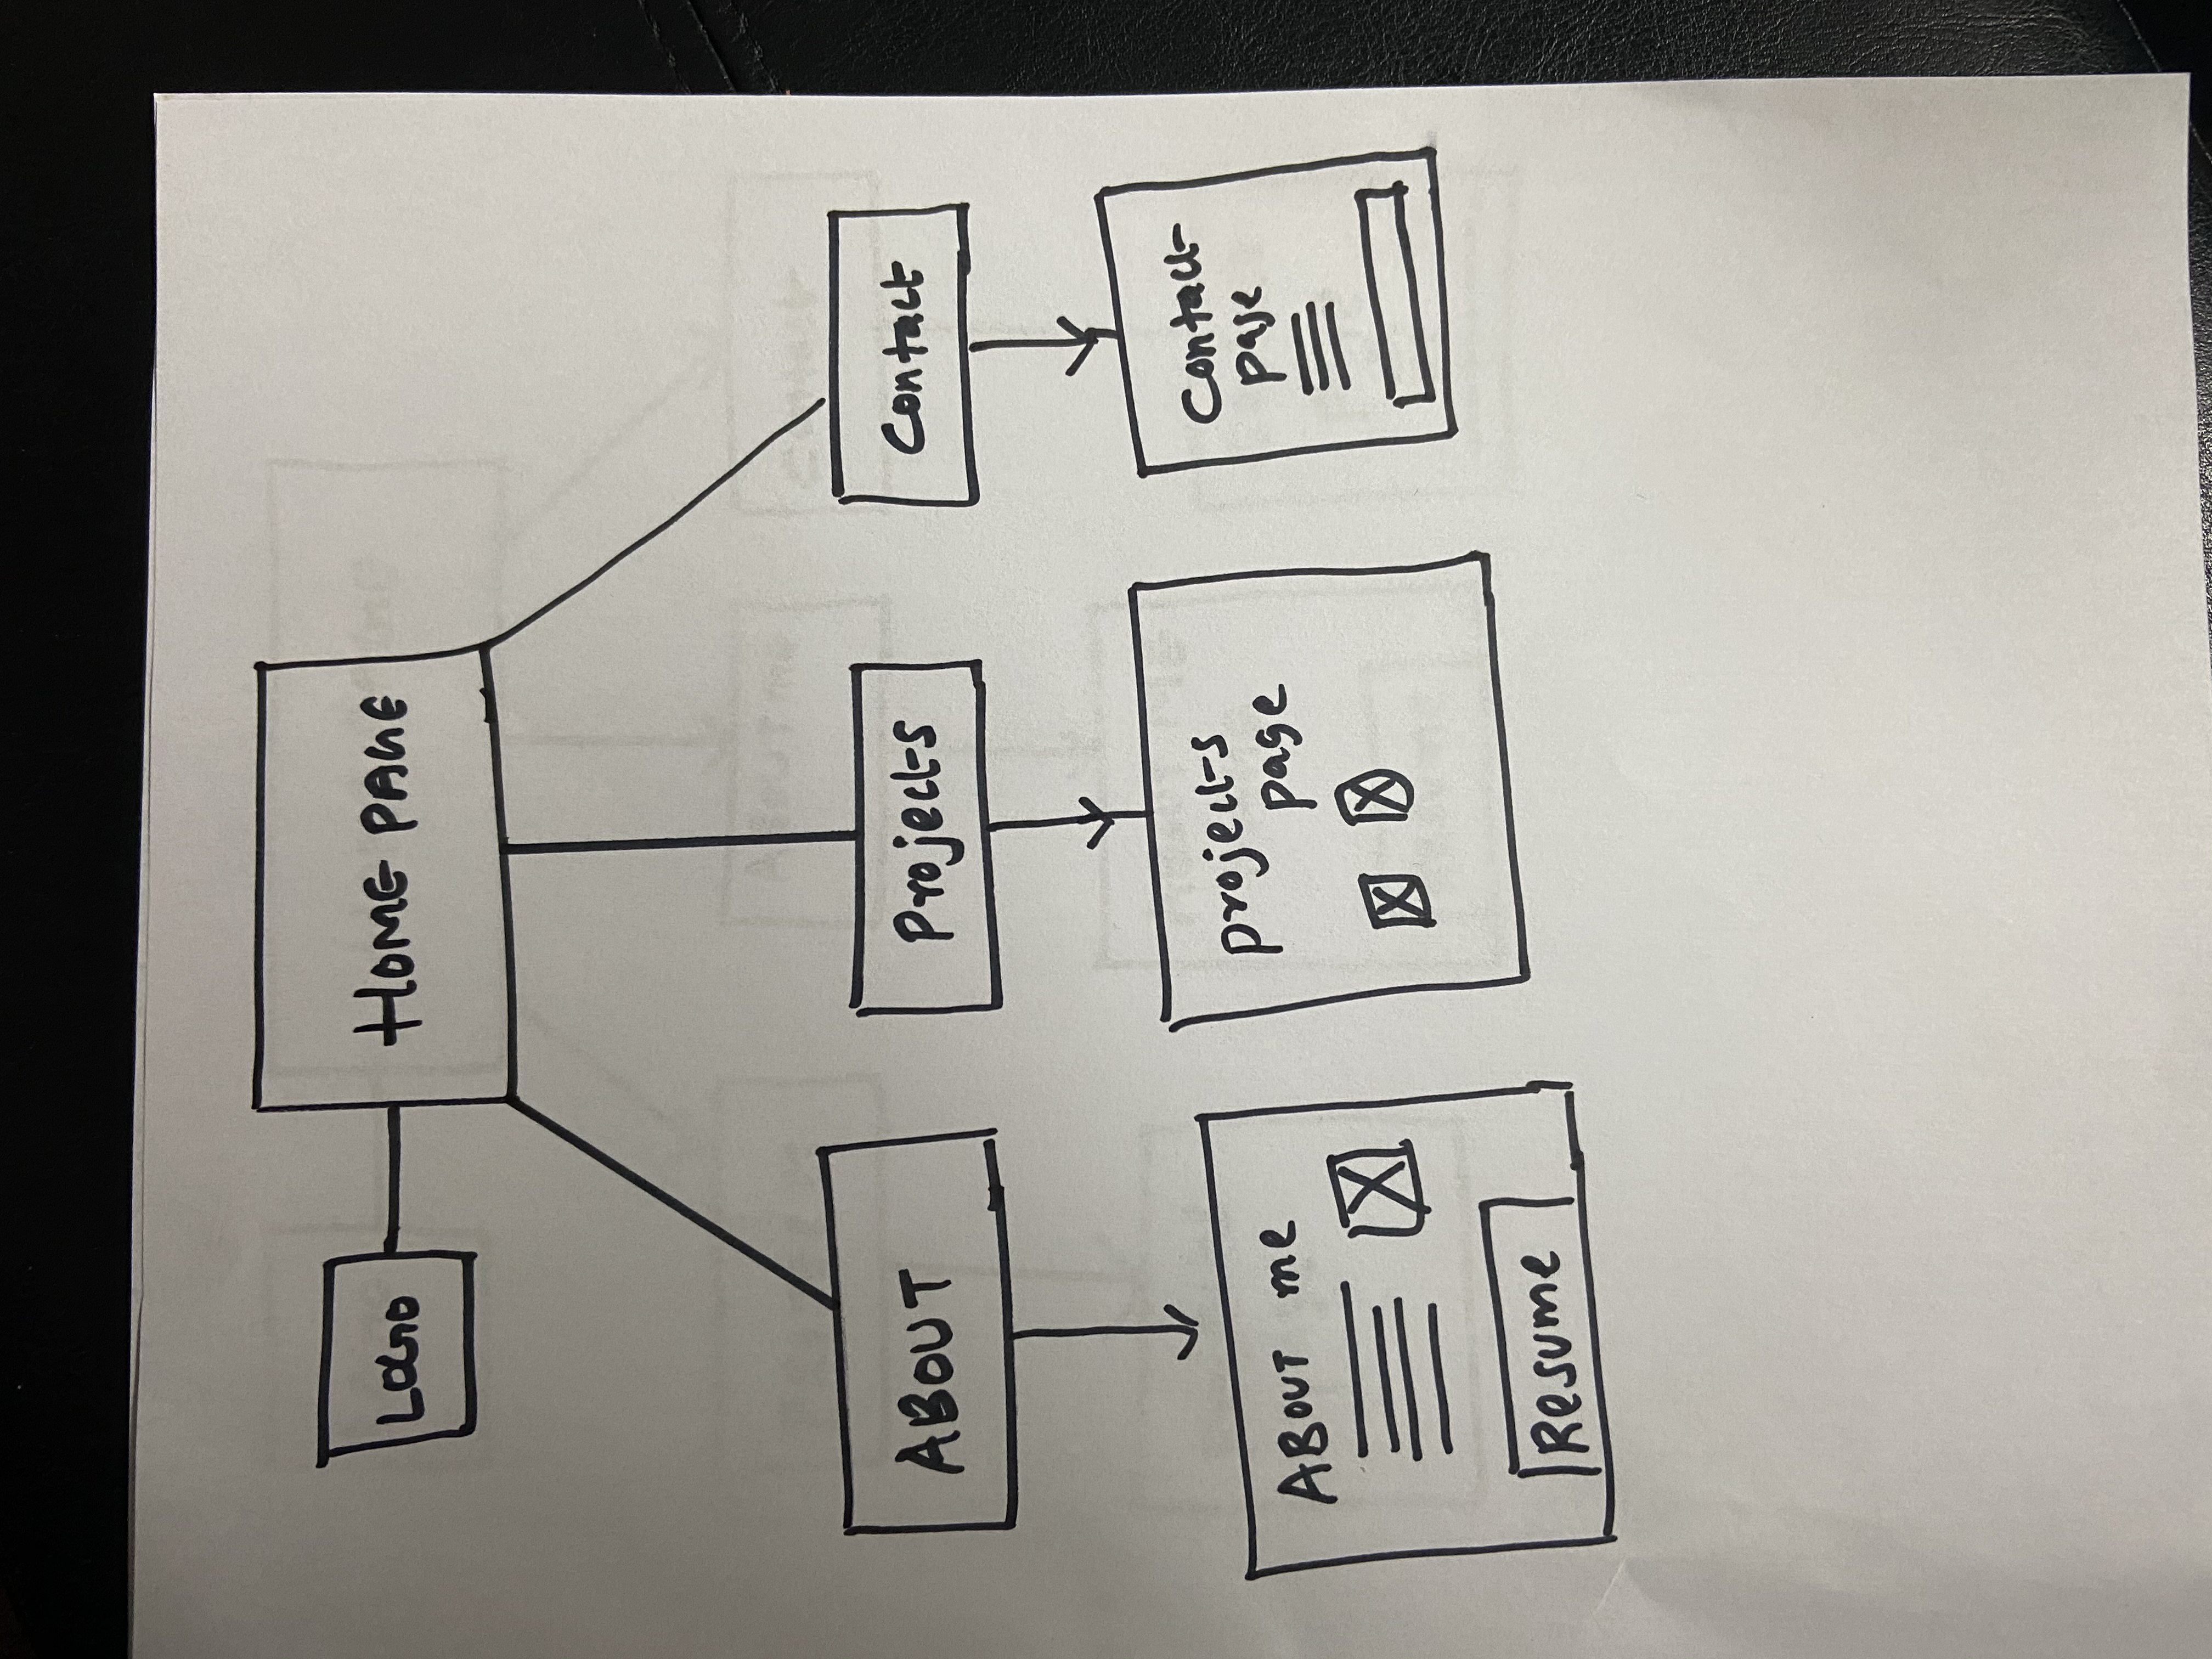 LOGO
HOME PAGE
ABOUT
Projects
Contact
ABOUT me
Resume
projects
page
Contact
page